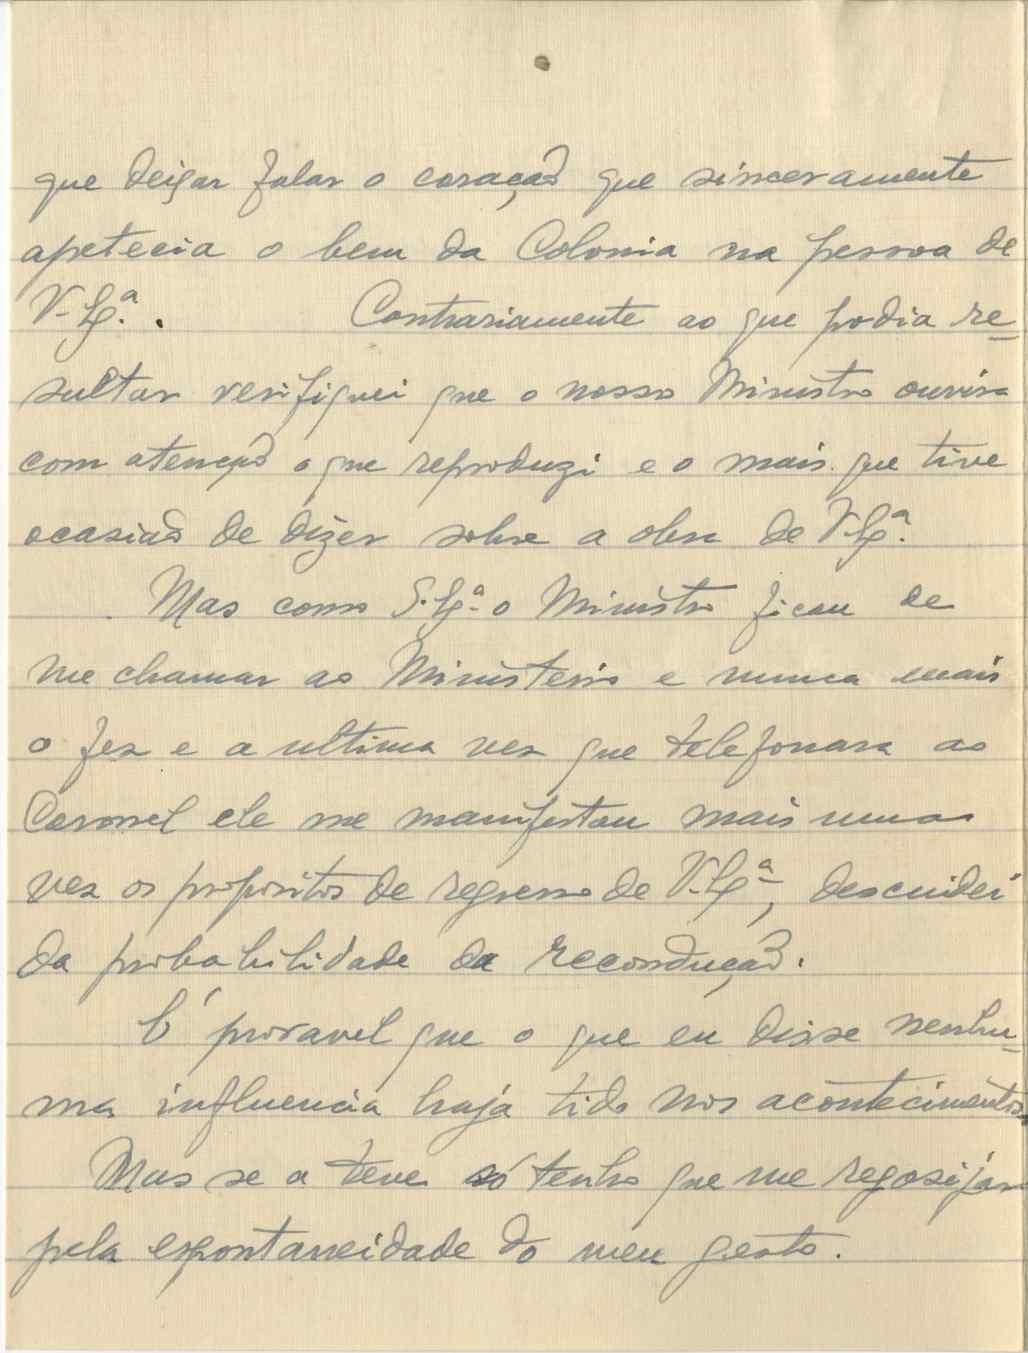 que deixar falar o coração que sinceramente
apetecia o bem da Colonia na pessoa de
V. Ex.ª. Contrariamente ao que podia re-
sultar verifiquei que o nosso Ministro ouvira
com atenção o que reproduzi e o mais que tive
ocasião de dizer sobre a obra de V. Ex.ª.
Mas como S. Ex.ª o Ministro ficou de
me chamar ao Ministerio e nunca mais
o fez e a ultima vez que telefonara ao
Coronel ele me manifestou mais uma
vez os propositos de regresso de V. Ex.ª, descuidei
da probabilidade da recondução.
É provavel que o que eu disse nenhu-
ma influencia haja tido nos acontecimentos.
Mas se a teve só tenho que me regosijar
pela espontaneidade do meu gesto.